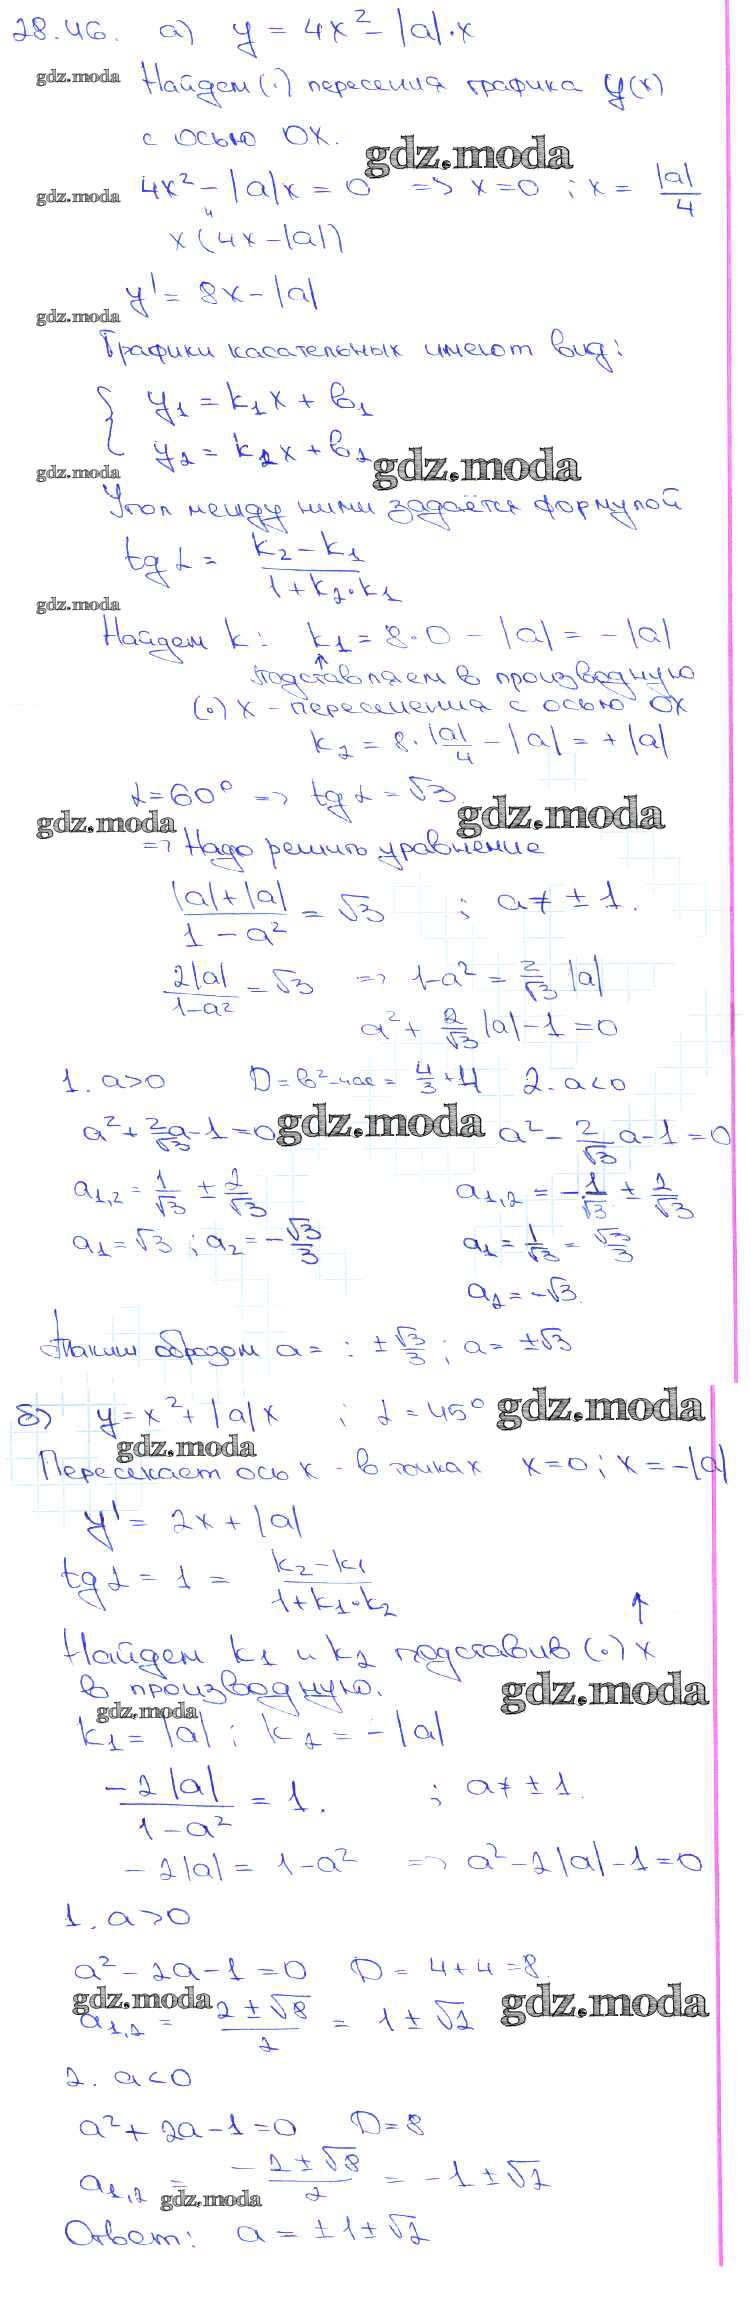 28.46. а) y = 4x² - |a|·x
gdz.moda
Найдем (·) пересечния графика y(x)
с осью OX.
gdz.moda
gdz.moda
4x² - |a|x = 0 => x = 0 ; x = |a|/4
x(4x - |a|)
y' = 8x - |a|
gdz.moda
Графики касательных имеют вид:
{ y₁ = k₁x + b₁
y₂ = k₂x + b₂
gdz.moda
gdz.moda
Угол между ними задаётся формулой
tg α = (k₂ - k₁)/(1 + k₂·k₁)
gdz.moda
Найдем k: k₁ = 8·0 - |a| = -|a|
↑ подставляем в производную
(·) x - пересечения с осью OX
k₂ = 8·|a|/4 - |a| = +|a|
α = 60° => tg α = √3
gdz.moda
gdz.moda
=> Надо решить уравнение
(|a| + |a|)/(1 - a²) = √3 ; a ≠ ±1.
2|a|/(1 - a²) = √3 => 1 - a² = 2/√3 |a|
a² + 2/√3 |a| - 1 = 0
1. a > 0 D = b² - 4ac = 4/3 + 4 2. a < 0
a² + 2/√3 a - 1 = 0 gdz.moda a² - 2/√3 a - 1 = 0
a₁,₂ = 1/√3 ± 2/√3 a₁,₂ = -1/√3 ± 2/√3
a₁ = √3 ; a₂ = -√3/3 a₁ = 1/√3 = √3/3
a₂ = -√3.
Таким образом a = : ± √3/3 ; a = ±√3
б) y = x² + |a|x ; α = 45° gdz.moda
gdz.moda
Пересекает ось x - в точках x = 0 ; x = -|a|
y' = 2x + |a|
tg α = 1 = (k₂ - k₁)/(1 + k₁·k₂)
↑
Найдем k₁ и k₂ подставив (·) x
в производную.
gdz.moda
gdz.moda
k₁ = |a| ; k₂ = -|a|
-2|a|/(1 - a²) = 1. ; a ≠ ±1.
-2|a| = 1 - a² => a² - 2|a| - 1 = 0
1. a > 0
a² - 2a - 1 = 0 D = 4 + 4 = 8.
gdz.moda
gdz.moda
a₁,₂ = (2 ± √8)/2 = 1 ± √2
2. a < 0
a² + 2a - 1 = 0 D = 8
a₁,₂ = -(2 ± √8)/2 = -1 ± √2
gdz.moda
Ответ: a = ±1 ± √2